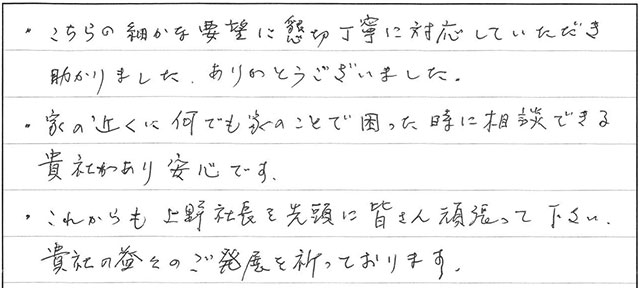 ・こちらの細かな要望に懇切丁寧に対応していただき
助かりました。ありがとうございました。
・家の近くに何でも家のことで困った時に相談できる
貴社があり安心です。
・これからも上野社長を先頭に皆さん頑張って下さい。
貴社の益々のご発展を祈っております。